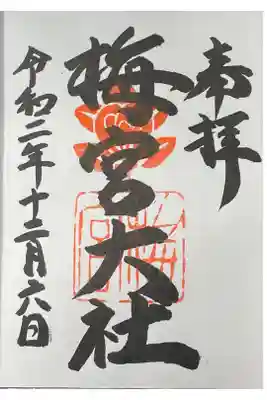 奉拝
梅宮大社
令和二年十二月六日